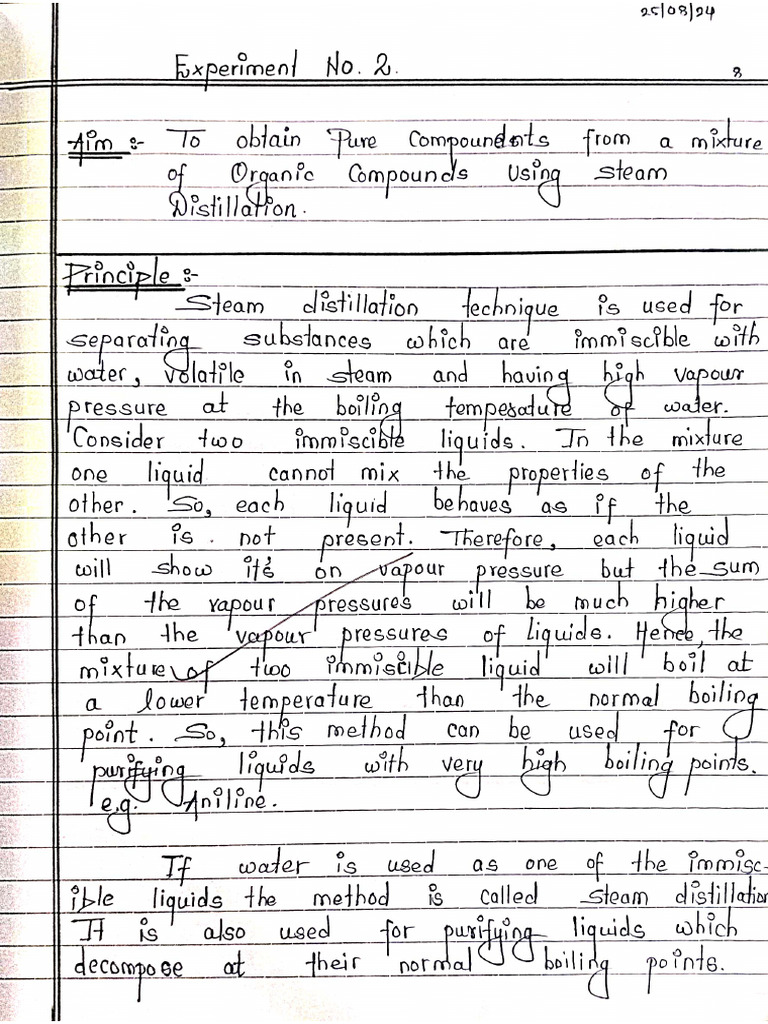 25/08/24
Experiment No. 2.
8
Aim :- To obtain Pure Compoundnts from a mixture
of Organic Compounds Using steam
Distillation.
Principle :-
Steam distillation technique is used for
separating substances which are immiscible with
water, volatile in steam and having high vapour
pressure at the boiling temperature of water.
Consider two immiscible liquids. In the mixture
one liquid cannot mix the properties of the
other. So, each liquid behaves as if the
other is not present. Therefore, each liquid
will show it's on vapour pressure but the sum
of the vapour pressures will be much higher
than the vapour pressures of liquids. Hence, the
mixture of two immiscible liquid will boil at
a lower temperature than the normal boiling
point. So, this method can be used for
purifying liquids with very high boiling points.
e.g. Aniline.
If water is used as one of the immisc-
ible liquids the method is called steam distillation
It is also used for purifying liquids which
decompose at their normal boiling points.